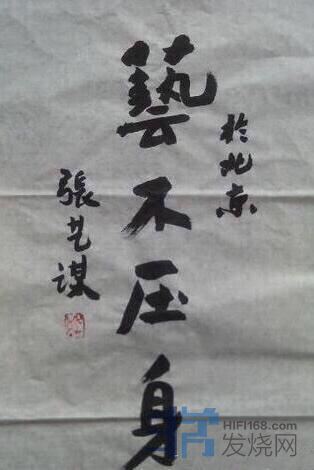 於北京
藝不压身
張艺谋
HIFI168.com
发烧网